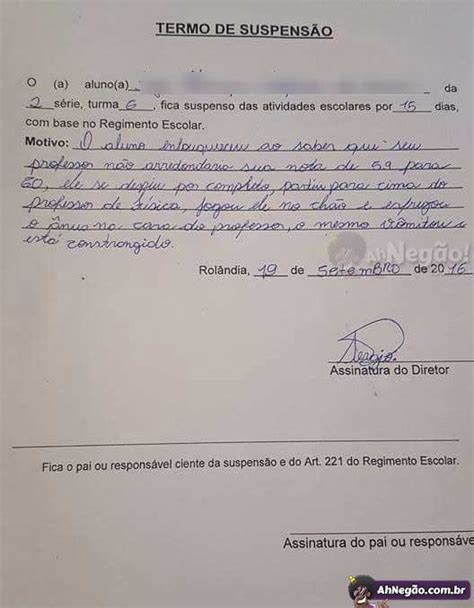 TERMO DE SUSPENSÃO
O (a) aluno(a) da
2 série, turma 6, fica suspenso das atividades escolares por 15 dias,
com base no Regimento Escolar.
Motivo: O aluno enlouqueceu ao saber que seu
professor não arredondaria sua nota de 59 para
60, ele se despiu por completo, partiu para cima do
professor de física, jogou ele no chão e esfregou
o ânus na cara do professor, o mesmo vomitou e
está constrangido.
AhNegão!
Rolândia, 19 de SetemBRO de 2016
Sergio.
Assinatura do Diretor
Fica o pai ou responsável ciente da suspensão e do Art. 221 do Regimento Escolar.
Assinatura do pai ou responsáve
AhNegão.com.br